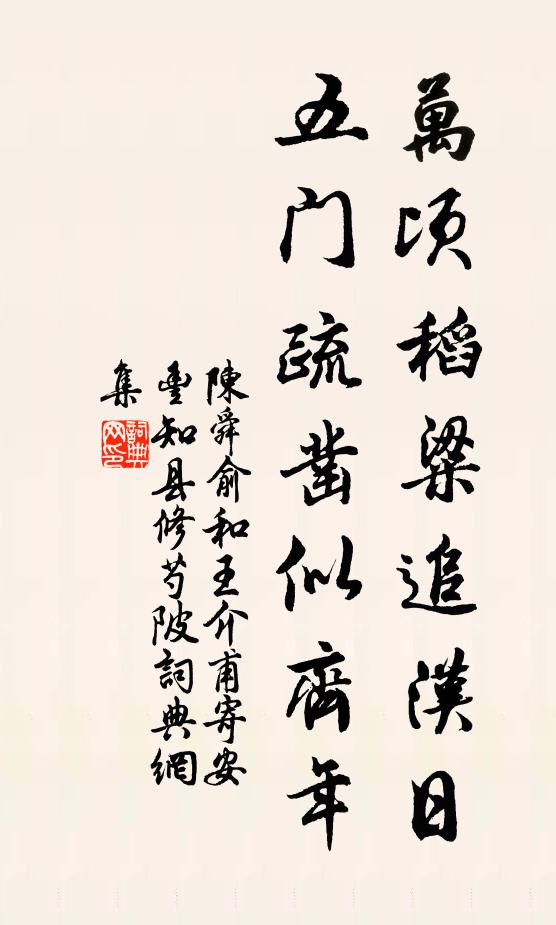 萬頃稻梁追漢日
五门疏凿似齊年
陳舜俞和王介甫寄安
豊知县修芍陂詞典網
集
詞典
网印